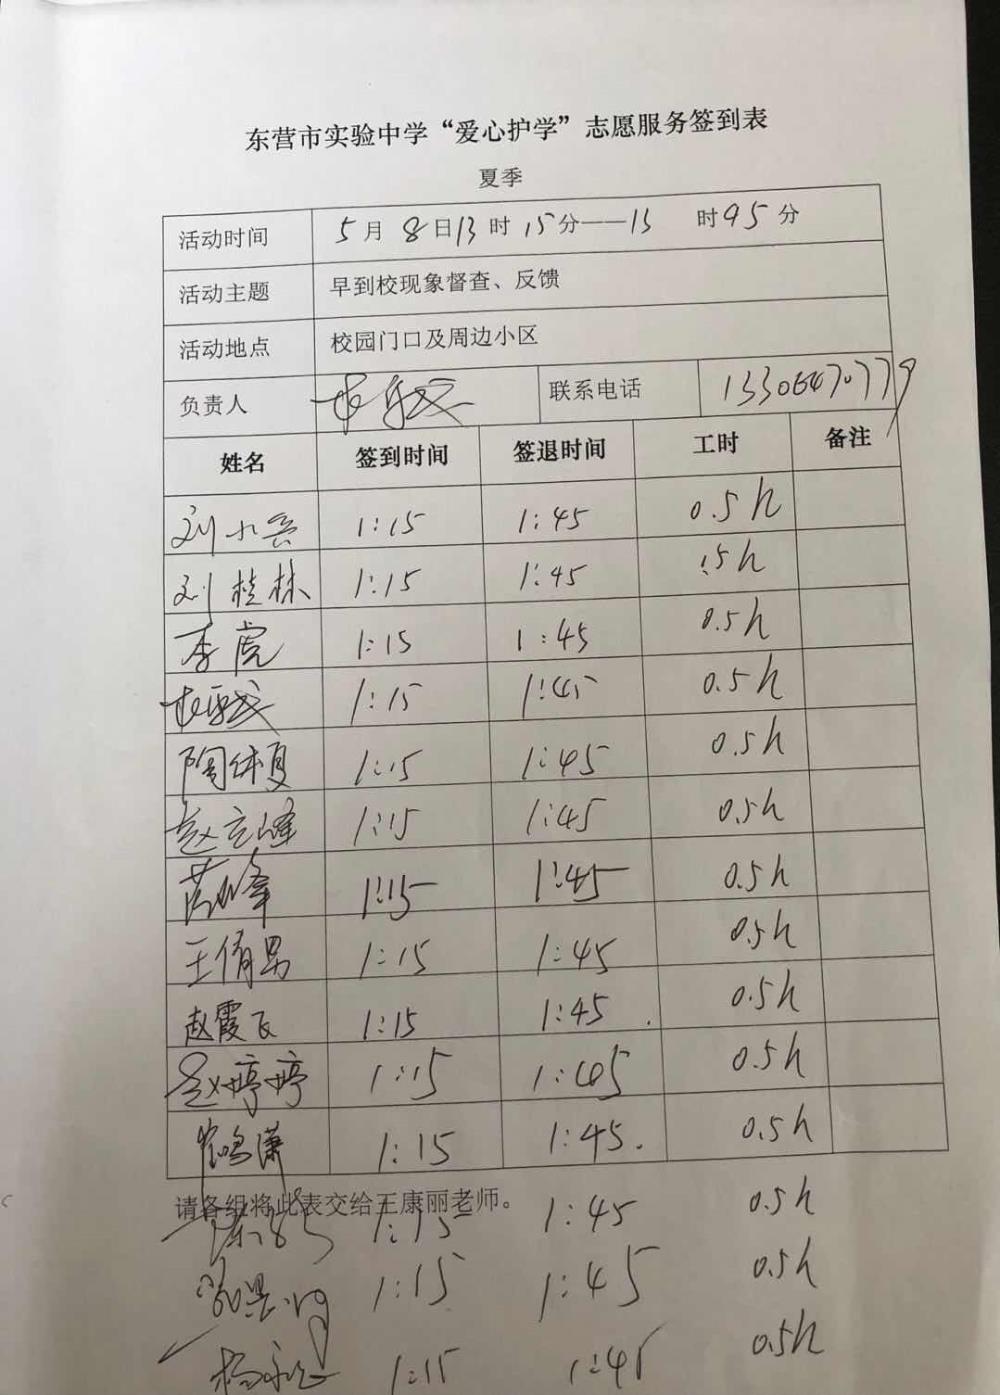 东营市实验中学“爱心护学”志愿服务签到表
夏季
活动时间 5月8日13时15分——13 时45分
活动主题 早到校现象督查、反馈
活动地点 校园门口及周边小区
负责人 联系电话 13306470779
姓名 签到时间 签退时间 工时 备注
刘小兵 1:15 1:45 0.5h
刘桂林 1:15 1:45 .5h
李虎 1:15 1:45 0.5h
1:15 1:45 0.5h
陶休夏 1:15 1:45 0.5h
赵立峰 1:15 1:45 0.5h
1:15 1:45 0.5h
王倩男 1:15 1:45 0.5h
赵霞飞 1:15 1:45. 0.5h
赵婷婷 1:15 1:45 0.5h
崔鸣潇 1:15 1:45. 0.5h
请各组将此表交给王康丽老师。
1:15 1:45 0.5h
1:15 1:45 0.5h
1:15 1:45 0.5h